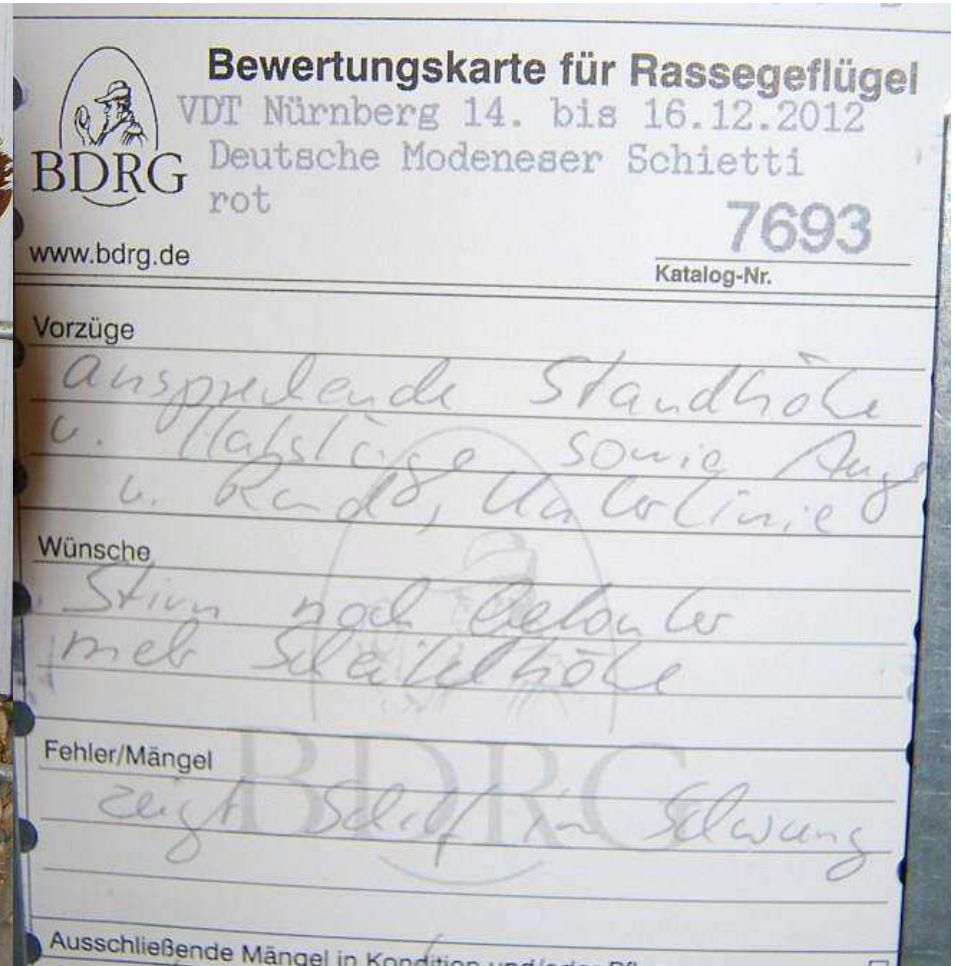 Bewertungskarte für Rassegeflügel
VDT Nürnberg 14. bis 16.12.2012
BDRG
Deutsche Modeneser Schietti
rot
7693
www.bdrg.de
Katalog-Nr.
Vorzüge
ansprechende Standhöhe
u. Halslänge sowie Auge
u. Rand, Unterlinie
Wünsche
Stirn noch betonter
mehr Scheitelhöhe
Fehler/Mängel
zeigt Schilf in Schwung
BDRG
Ausschließende Mängel in Kondition und/oder